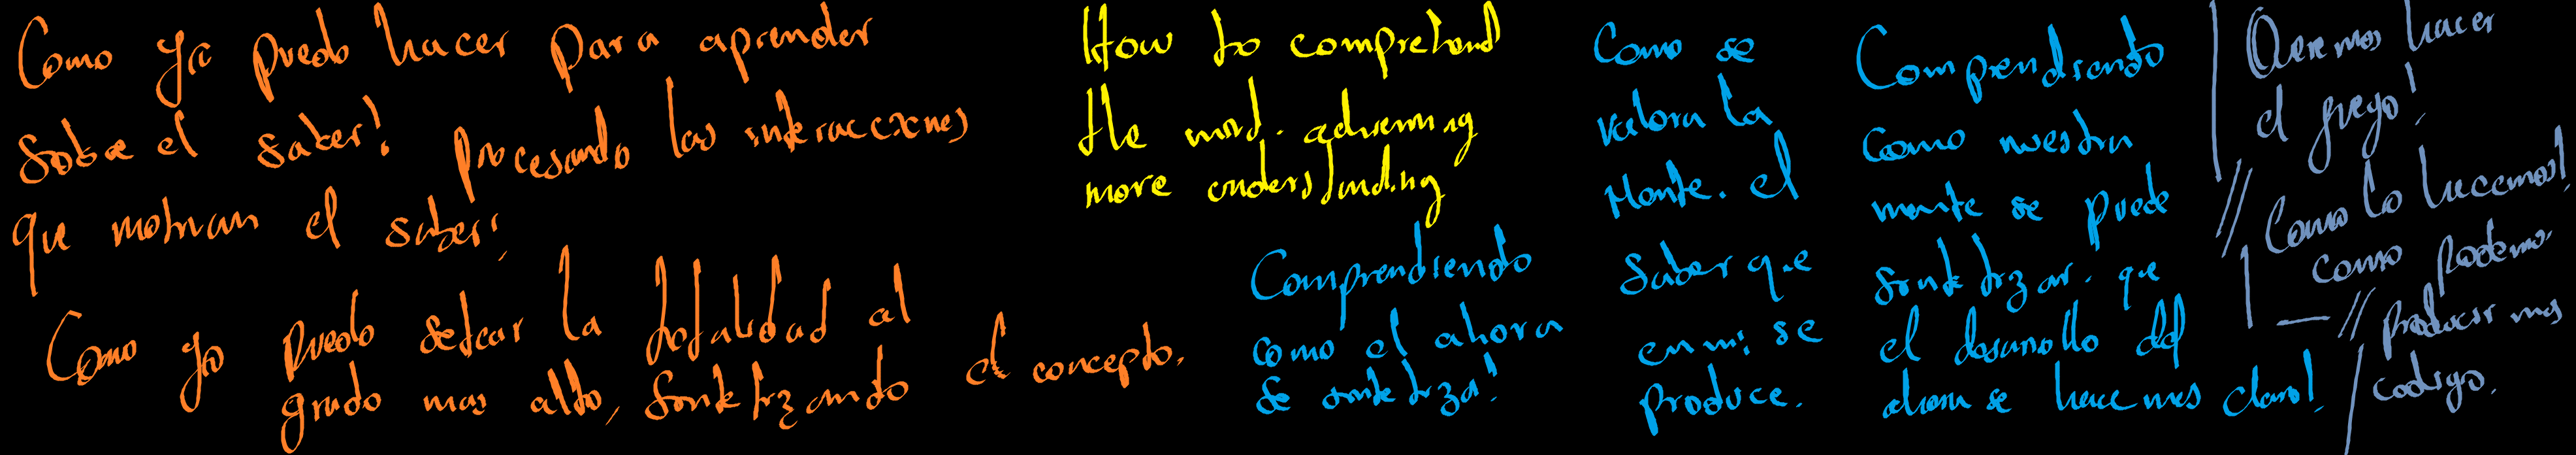 Como yo puedo hacer para aprender
sobre el saber! procesando las interacciones
que motivan el saber!
Como yo puedo setear la totalidad al
grado mas alto, sintetizando el concepto.
How to comprehend
the mind. adquiring
more understanding
Comprendiendo
como el ahora
se sintetiza!
Como se
valora la
Mente. el
saber que
en mi se
produce.
Comprendiendo
como nuestra
mente se puede
sintetizar. que
el desarrollo del
ahora se hace mas claro!
Queremos hacer
el juego!
// Como lo hacemos!
como podemos
// producir mas
codigo.